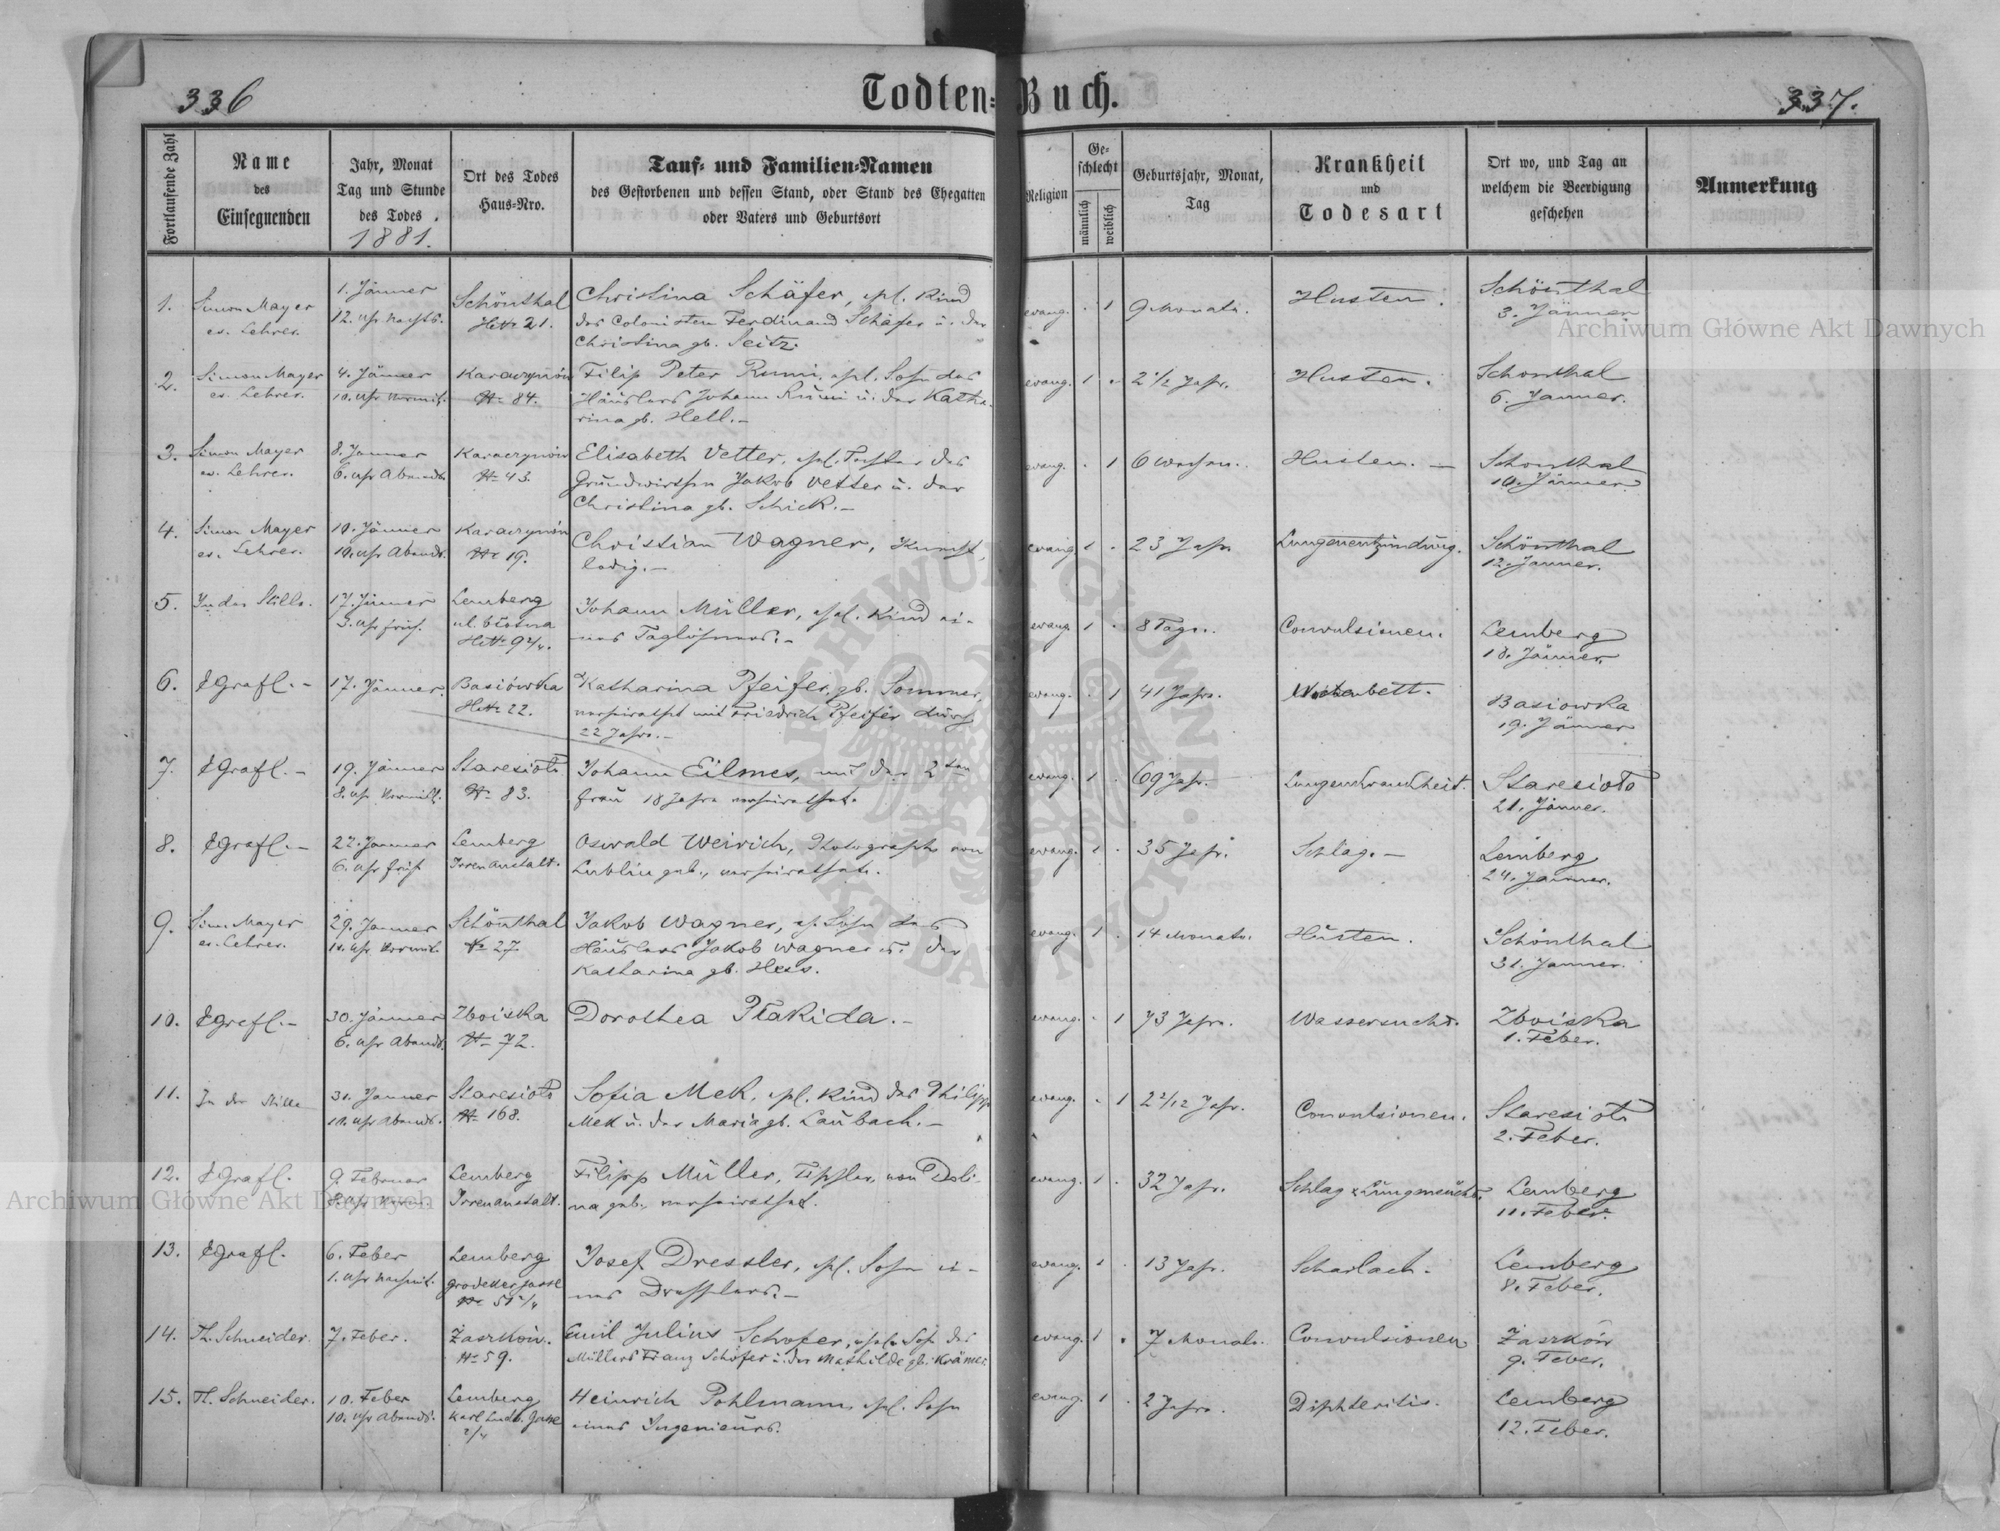 336
Todten-Buch.
337.
Fortlaufende Zahl
Name
des
Einsegnenden
Jahr, Monat
Tag und Stunde
des Todes.
1881.
Ort des Todes
Haus-Nro.
Tauf- und Familien-Namen
des Gestorbenen und dessen Stand, oder Stand des Ehegatten
oder Vaters und Geburtsort
Religion
Ge-
schlecht
männlich
weiblich
Geburtsjahr, Monat,
Tag
Krankheit
und
Todesart
Ort wo, und Tag an
welchem die Beerdigung
geschehen
Anmerkung
1.
Simon Mayer
ev. Lehrer.
1. Jänner
12. Uhr Nachts.
Schönthal
21.
Christina Schäfer, ehl. Kind
des Colonisten Ferdinand Schäfer u. der
Christina gb. Seitz.
evang.
1
9 Monate.
Husten.
Schönthal
3. Jänner
2.
Simon Mayer
ev. Lehrer.
4. Jänner
10. Uhr Vormit.
Karaczynów
84.
Filip Peter Rumi, ehl. Sohn des
Häuslers Johann Rumi u. der Katha-
rina gb. Hell.-
evang.
1
2 1/2 Jahr.
Husten.
Schönthal
6. Jänner.
3.
Simon Mayer
ev. Lehrer.
8. Jänner
6. Uhr Abends.
Karaczynów
43.
Elisabeth Vetter, ehl. Tochter des
Grundwirthen Jakob Vetter u. der
Christina gb. Schick.-
evang.
1
6 Wochen.
Husten.-
Schönthal
10. Jänner.
4.
Simon Mayer
ev. Lehrer.
10. Jänner
10. Uhr Abends.
Karaczynów
19.
Christian Wagner, Knecht,
ledig.-
evang.
1
23 Jahr.
Lungenentzündung.
Schönthal
12. Jänner.
5.
In der Stille.
17. Jänner
3. Uhr früh.
Lemberg
ul. błotna
9 2/4.
Johann Müller, ehl. Kind ei-
nes Taglöhners.-
evang.
1
8 Tage.
Convulsionen.
Lemberg
18. Jänner.
6.
Egrafl.-
17. Jänner.
Basiówka
22.
Katharina Pfeifer, gb. Sommer,
verheirathet mit Friedrich Pfeifer durch
22 Jahre.-
evang.
1
41 Jahre.
Wochenbett.
Basiowka
19. Jänner
7.
Egrafl.-
19. Jänner
8. Uhr Vormitt.
Staresioło
83.
Johann Eilmes, mit der 2ten
Frau 18 Jahre verheirathet.
evang.
1
69 Jahr.
Lungenkrankheit.
Staresioło
21. Jänner.
8.
Egrafl.-
22. Jänner
6. Uhr früh
Lemberg
Irrenanstalt.
Oswald Weirich, Photograph von
Lublin geb., verheirathet.
evang.
1
35 Jahr.
Schlag.-
Lemberg
24. Jänner.
9.
Sim. Mayer
ev. Lehrer.
29. Jänner
10. Uhr Vormit.
Schönthal
27
Jakob Wagner, eh. Sohn des
Häuslers Jakob Wagner u. der
Katharina gb. Hess.
evang.
1
14 Monate.
Husten.
Schönthal
31. Jänner.
10.
Egrafl.-
30. Jänner
6. Uhr Abends.
Zboiska
72.
Dorothea Płakida.-
evang.
1
73 Jahre.
Wassersucht.
Zboiska
1. Feber.
11.
In der Stille
31. Jänner
10. Uhr Abends.
Staresioło
168.
Sofia Mek, ehl. Kind des Philipp
Mek u. der Maria gb. Laubach.-
evang.
1
2 2/12 Jahr.
Convulsionen.
Staresioło
2. Feber.
12.
Egrafl.
9. Februar
8. Uhr
Lemberg
Irrenanstalt.
Filipp Müller, Tischler, von Doli-
na geb., verheirathet.
evang.
1
32 Jahr.
Schlag
Lemberg
11. Feber.
13.
Egrafl.
6. Feber
1. Uhr Nachmit.
Lemberg
Grodeker Gasse
51 2/4
Josef Dressler, ehl. Sohn ei-
nes Drechslers.-
evang.
1
13 Jahr.
Scharlach.
Lemberg
8. Feber.
14.
Th. Schneider.
7. Feber.
Zaszków.
59.
Emil Julius Schofer, ehel. Soh. des
Müllers Franz Schöfer u. der Mathilde gb. Krämer.
evang.
1
7 Monate.
Convulsionen
Zaszków
9. Feber.
15.
Th. Schneider.
10. Feber
10. Uhr Abends.
Lemberg
Karl Ludw. Gasse
2/4
Heinrich Pohlmann, ehl. Sohn
eines Ingenieurs.
evang.
1
2 Jahre.
Diphteritis.
Lemberg
12. Feber.
Archiwum Główne Akt Dawnych
Archiwum Główne Akt Dawnych
ARCHIWUM GŁÓWNE AKT DAWNYCH